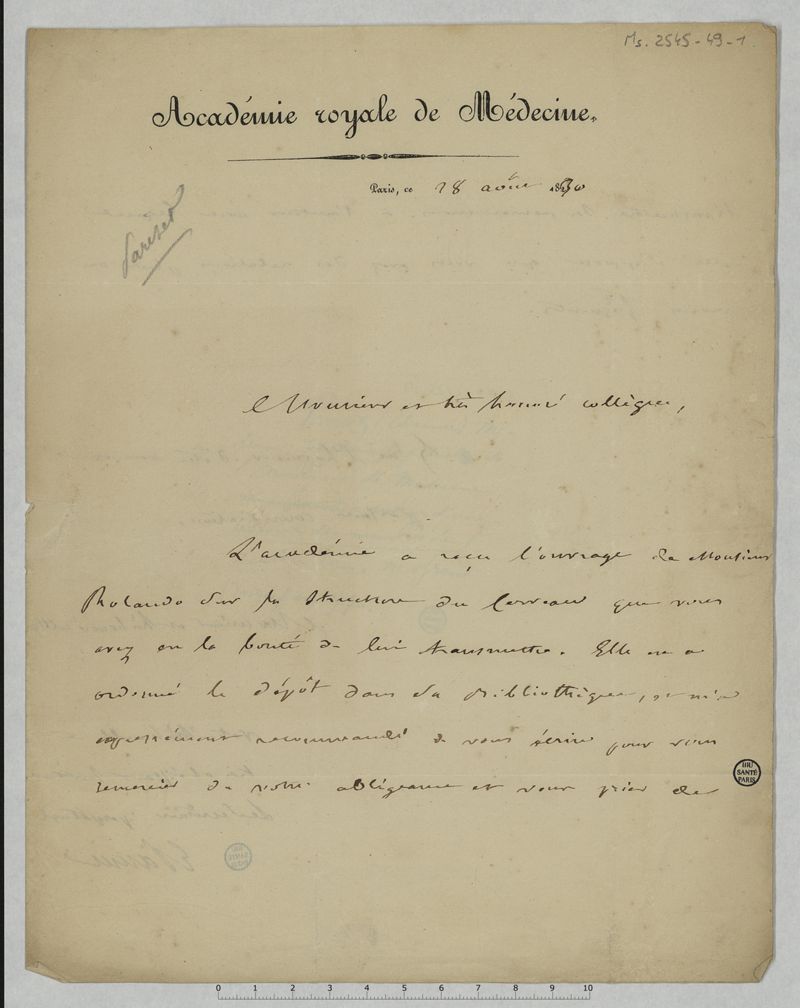 Ms. 2545-49-1
Académie royale de Médecine.
Paris, ce 28 août 1830
Pariset
Monsieur et très honoré collègue,
L'académie a reçu l'ouvrage de Monsieur
Rolando sur la structure du Cerveau que vous
avez eu la bonté de lui transmettre. Elle en a
ordonné le dépôt dans sa Bibliothèque, et m'a
expressément recommandé de vous écrire pour vous
remercier de votre obligeance et vous prier de
BIU
SANTÉ
PARIS
0 1 2 3 4 5 6 7 8 9 10